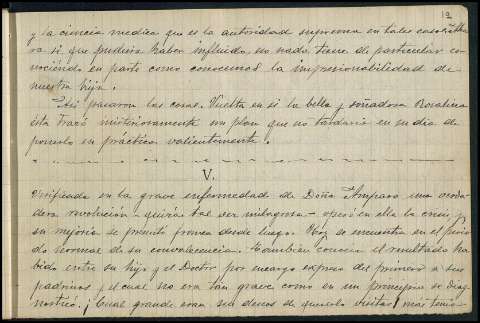 12
y la ciencia medica que es la autoridad suprema en tales casos. Aho
ra si que pudiera haber influido no nada tiene de particular co
nociendo en parte como conocemos la impresionabilidad de
nuestra hija.
Así pasaron las cosas. Vuelta en si la bella y soñadora Rosalina
ésta trazó misteriosamente un plan que no tardaria en su dia de
ponerlo en práctica valientemente.
V.
Verificada en la grave enfermedad de Doña Amparo una verda-
dera revolución - quizás tal vez milagrosa - operó en ella la crisis, y
su mejoria se presentó franca desde luego. Hoy se encuentra en el perio
do normal de su convalecencia. Tambien conocia el resultado ha
bido entre su hija y el Doctor por encargo expreso del primero a sus
padrinos y el cual no era tan grave como en un principio se diag-
nosticó. ¡Cual grande eran sus deseos de quererlo visitar! más tenia